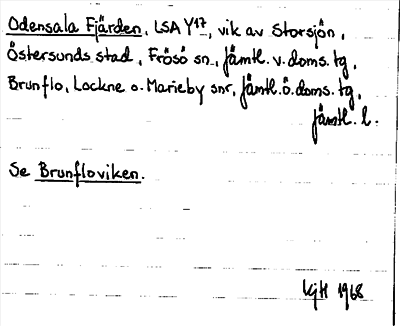 Odensala Fjärden, LSA Y17, vik av Storsjön,
Östersunds stad, Frösö sn, Jämtl. v. doms. tg,
Brunflo, Lockne o. Marieby snr, Jämtl. ö. doms. tg,
Jämtl. l.
Se Brunfloviken.
KjH 1968